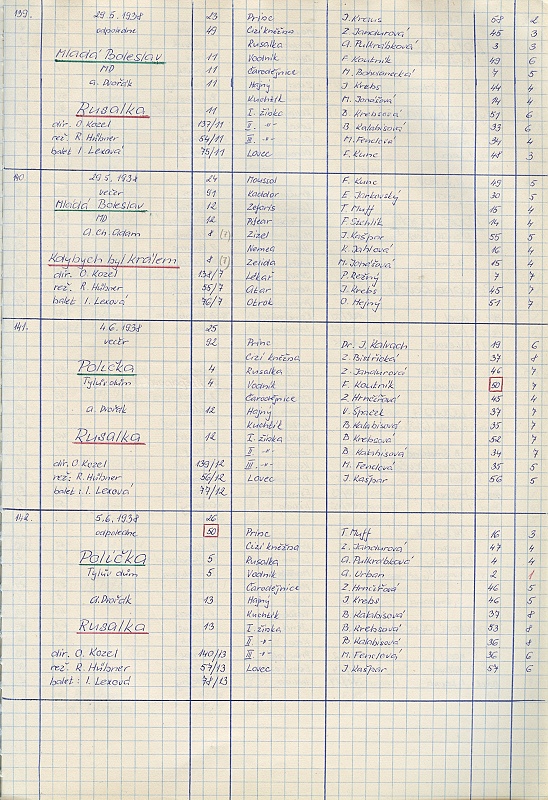 139. 29.5.1938 23 Princ J. Kraus 58 2
odpoledne 49 Cizí kněžna Z. Jandurová 45 3
Rusalka A. Pulkrábková 3 3
Mladá Boleslav 11 Vodník F. Koutník 49 6
MD 11 Čarodějnice M. Bohdanecká 7 5
A. Dvořák 11 Hajný J. Krebs 44 4
Kuchtík M. Jonášová 14 4
Rusalka 11 I. žínka B. Krebsová 51 6
dir. O. Kozel 137/11 II. -"- B. Kalabisová 33 6
rež. R. Hübner 54/11 III. -"- M. Fenclová 34 4
balet I. Lexová 75/11 Lovec F. Kunc 48 3
140. 29.5.1938 24 Moussol F. Kunc 49 5
večer 91 Kaddor E. Jarkovský 30 5
Mladá Boleslav 12 Zeforis T. Muff 15 4
MD 12 Pifear F. Szehlík 14 4
A. Ch. Adam 8 (7) Zizel J. Kašpar 55 5
Nemea K. Jahlová 16 4
Kdybych byl králem 8 (7) Zelida M. Jonášová 15 4
dir. O. Kozel 138/7 Lékař P. Režný 7 7
rež. R. Hübner 55/7 Atar J. Krebs 45 7
balet I. Lexová 76/7 Otrok O. Hejný 51 7
141. 4.6.1938 25
večer 92 Princ Dr. J. Kalvach 19 6
Cizí kněžna Z. Bistřická 37 8
Polička 4 Rusalka Z. Jandurová 46 7
Tylův dům 4 Vodník F. Koutník 50 7
Čarodějnice Z. Hrnčířová 45 4
A. Dvořák 12 Hajný V. Špaček 37 7
Kuchtík B. Kalabisová 35 7
Rusalka 12 I. žínka B. Krebsová 52 7
II. -"- B. Kalabisová 34 7
dir. O. Kozel 139/12 III. -"- M. Fenclová 35 5
rež. R. Hübner 56/12 Lovec J. Kašpar 56 5
balet: I. Lexová 77/12
142. 5.6.1938 26
odpoledne 50 Princ T. Muff 16 3
Cizí kněžna Z. Jandurová 47 4
Polička 5 Rusalka A. Pulkrábková 4 4
Tylův dům 5 Vodník A. Urban 2 1
Čarodějnice Z. Hrnčířová 46 5
A. Dvořák 13 Hajný J. Krebs 46 5
Kuchtík B. Kalabisová 37 8
Rusalka 13 I. žínka B. Krebsová 53 8
II. -"- B. Kalabisová 36 8
dir. O. Kozel 140/13 III. -"- M. Fenclová 36 6
rež. R. Hübner 57/13 Lovec J. Kašpar 57 6
balet: I. Lexová 78/13